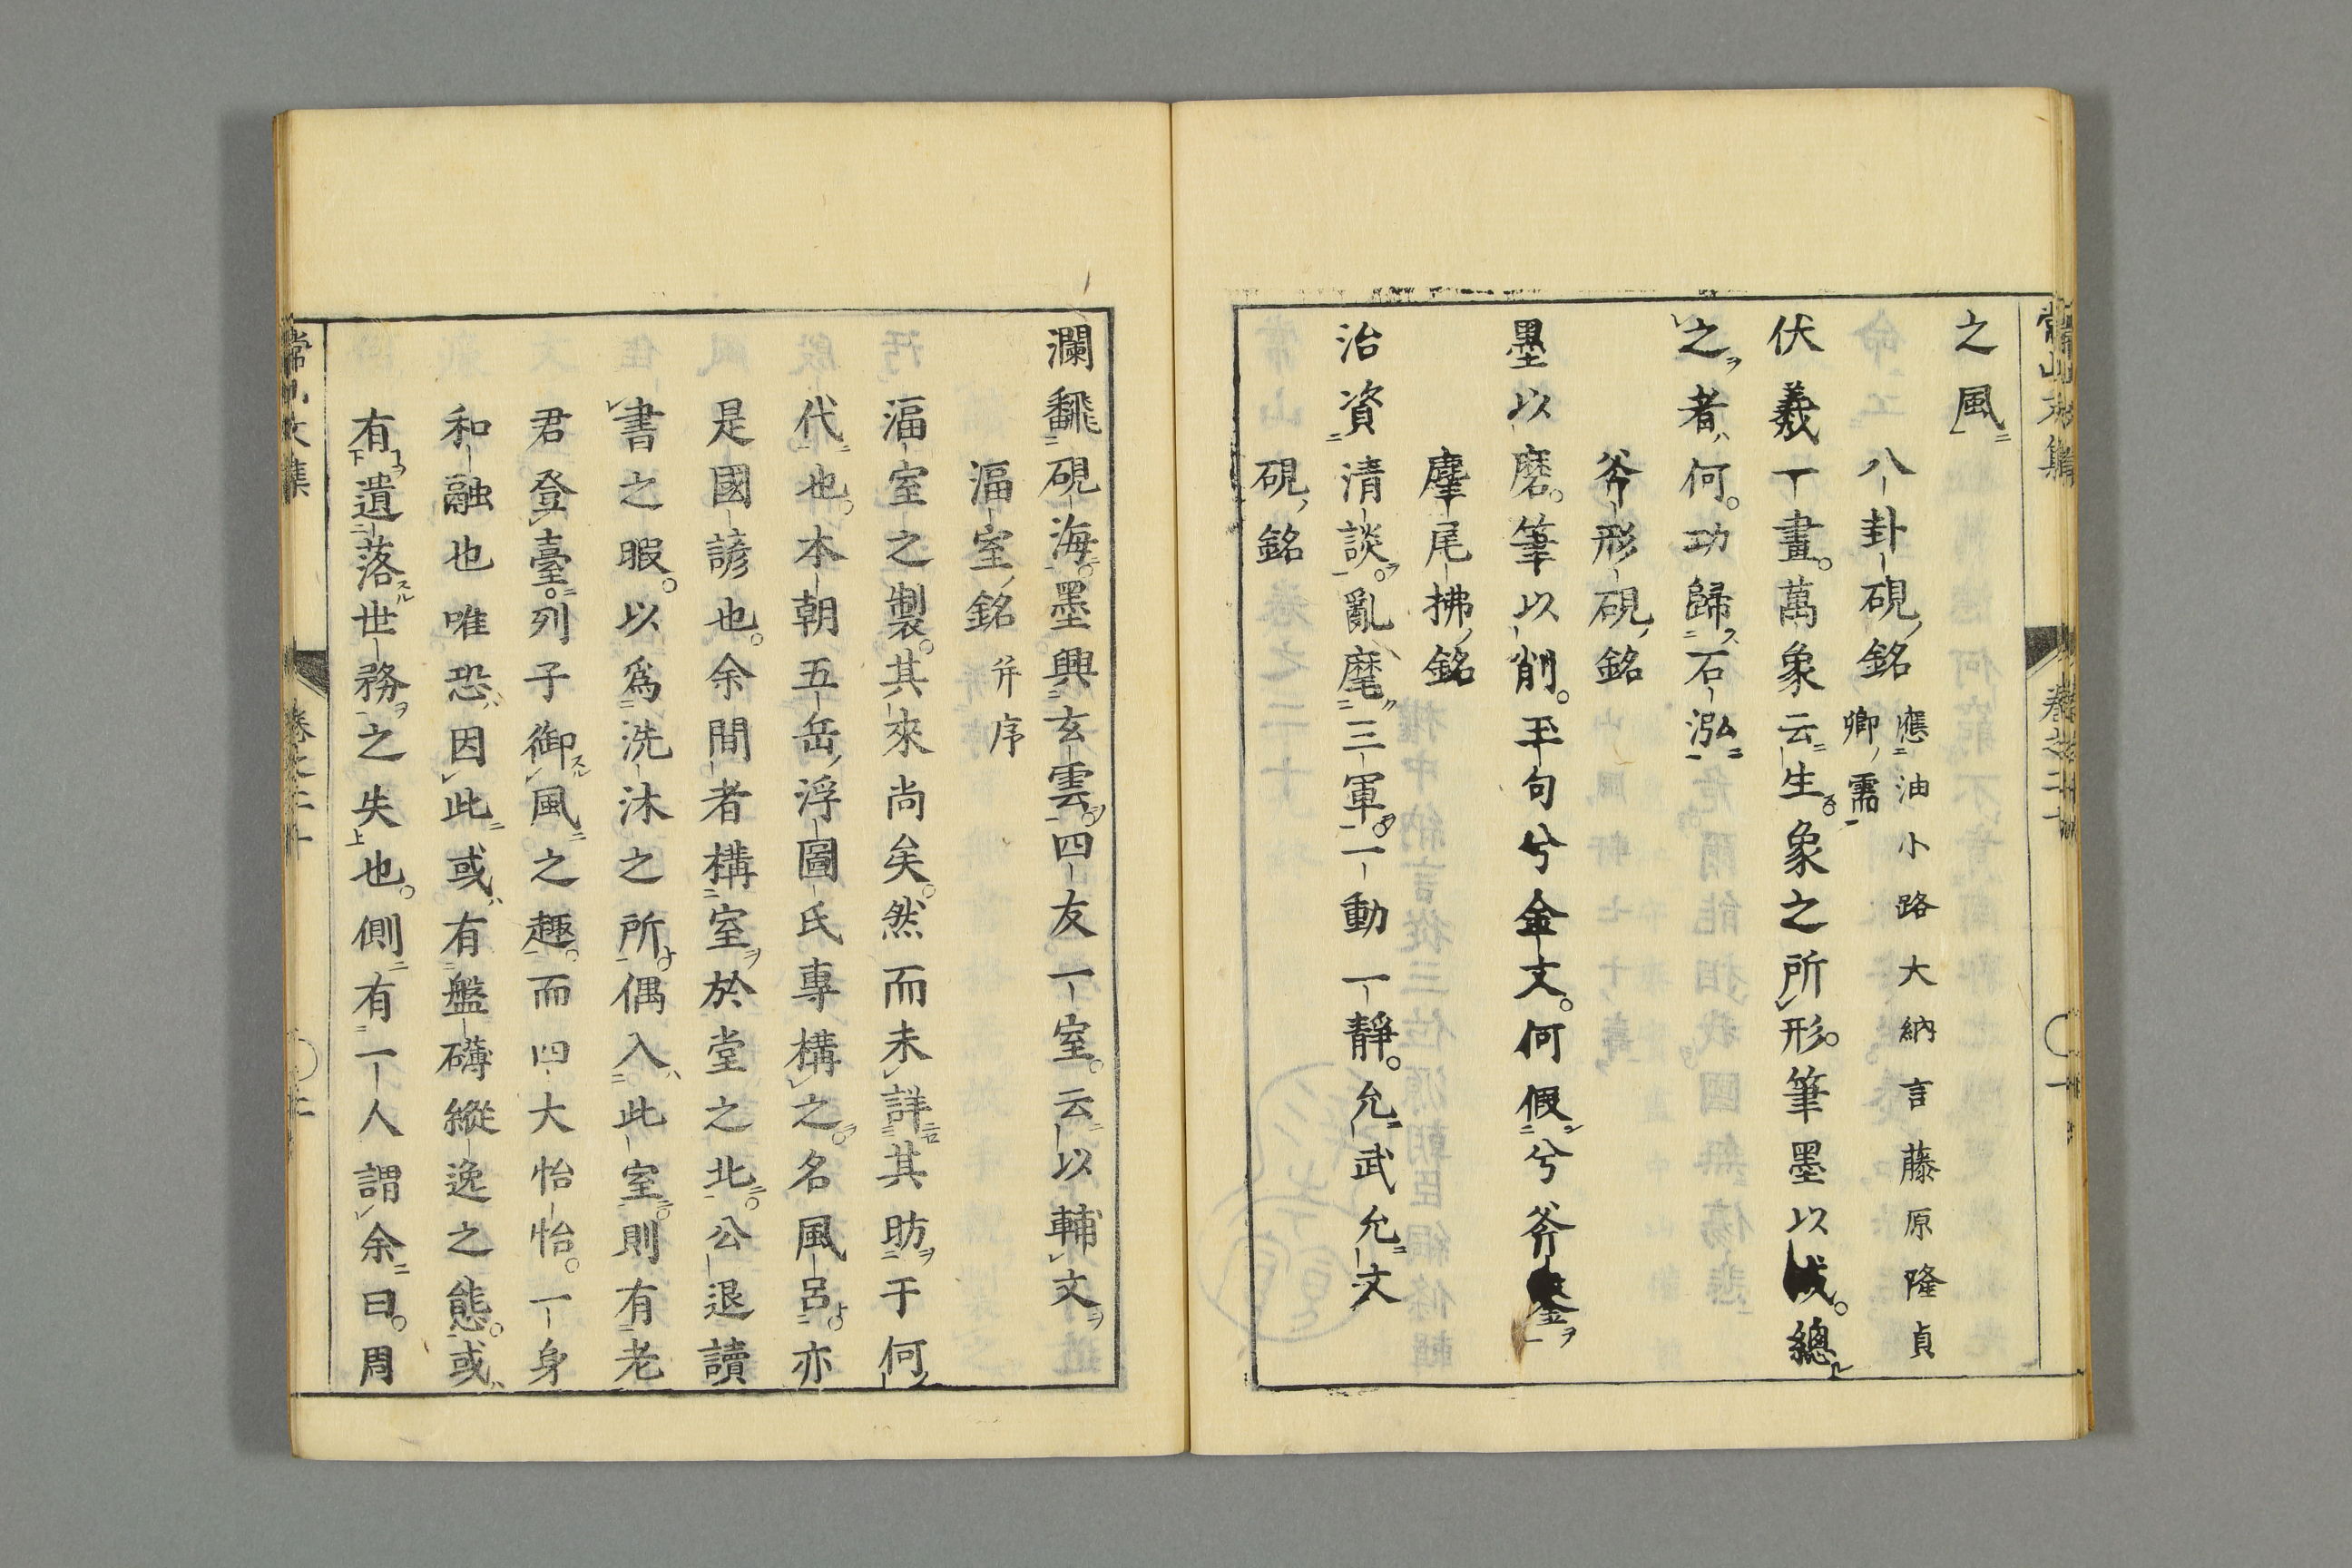 之風
八卦硯銘 應油小路大納言藤原隆貞
卿需
伏羲一畫。萬象云生。象之所形。筆墨以成。總
之者何。功歸石泓
斧形硯銘
墨以磨。筆以削。玉句兮金文。何假兮斧鑿
麈尾拂銘
治資清談。亂麾三軍。一動一靜。允武允文
硯銘
瀾飜硯海墨興玄雲。四友一室。云以輔文
湢室銘 并序
湢室之製。其來尚矣。然而未詳其昉于何
代也。本朝五岳浮圖氏專構之。名風呂。亦
是國諺也。余間者構室於堂之北。公退讀
書之暇。以爲洗沐之所。偶入此室。則有老
君登臺。列子御風之趣。而四大怡怡。一身
和融也唯恐因此或有盤礴縱逸之態。或
有遺落世務之失也。側有一人謂余曰。周